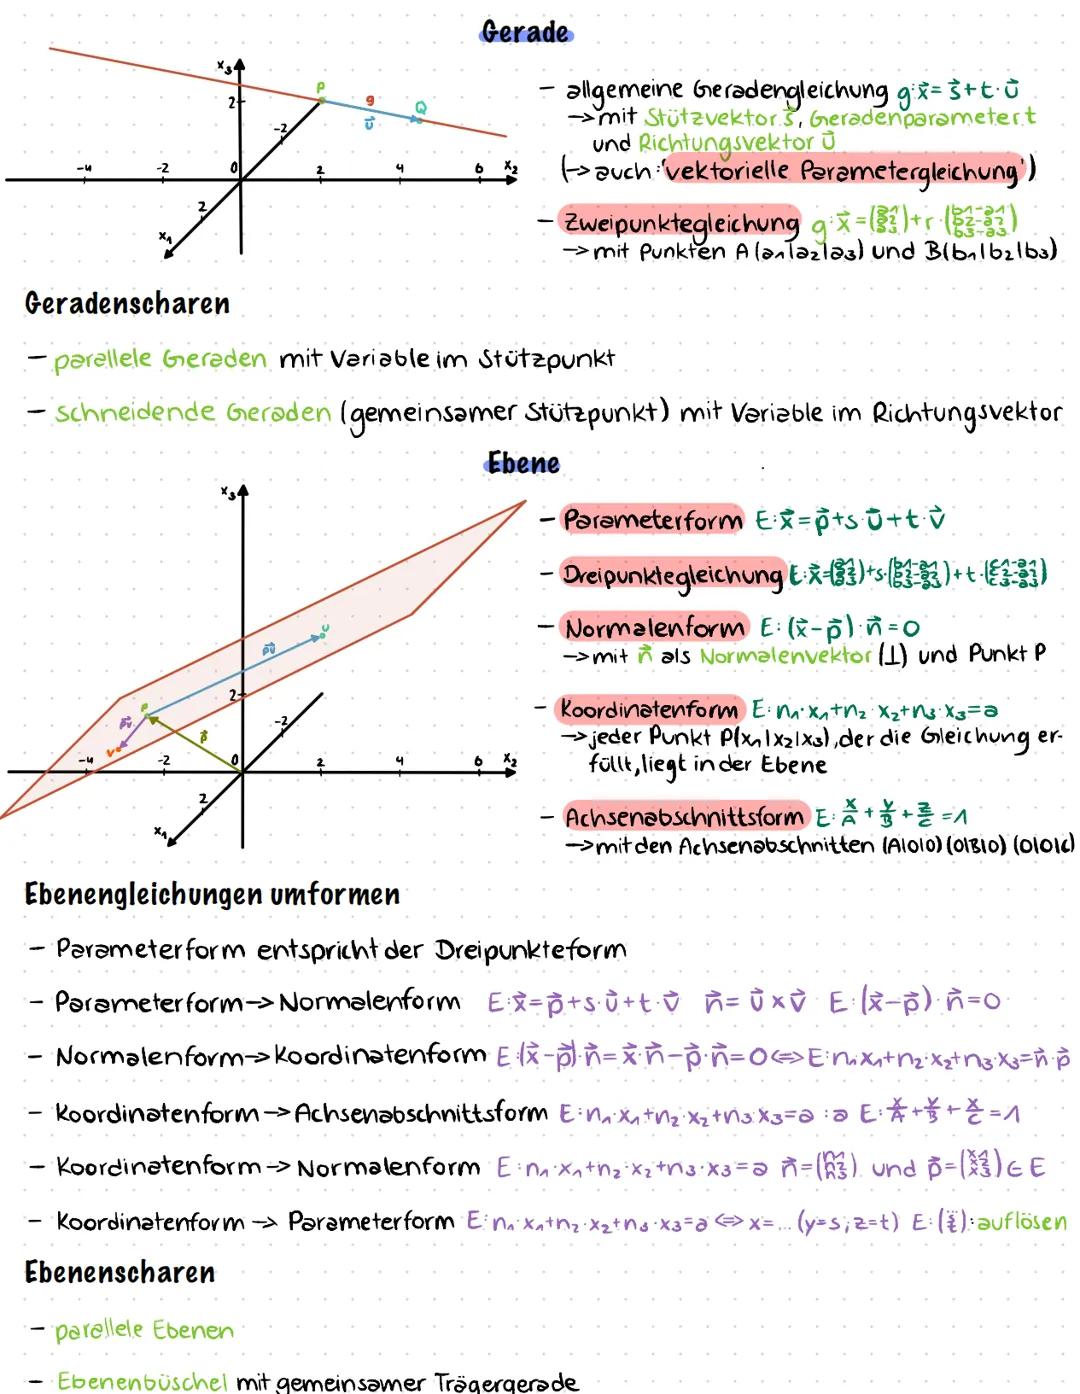 Gerade
x₃
2
P
g
Q
u⃗
-2
-4
-2
0
2
4
6
x₂
2
x₁
- allgemeine Geradengleichung g:x⃗=s⃗+t·u⃗
→mit Stützvektor s⃗, Geradenparameter t
und Richtungsvektor u⃗
(→auch 'vektorielle Parametergleichung')
- Zweipunktegleichung g:x⃗=(a1 a2 a3)+r·(b1-a1 b2-a2 b3-a3)
→mit Punkten A(a₁|a₂|a₃) und B(b₁|b₂|b₃)
Geradenscharen
- parallele Geraden mit Variable im Stützpunkt
- schneidende Geraden (gemeinsamer Stützpunkt) mit Variable im Richtungsvektor
Ebene
x₃
2
-2
-4
-2
0
2
4
6
x₂
2
x₁
P
p⃗
- Parameterform E:x⃗=p⃗+s·u⃗+t·v⃗
- Dreipunktegleichung E:x⃗=(a1 a2 a3)+s·(b1-a1 b2-a2 b3-a3)+t·(c1-a1 c2-a2 c3-a3)
- Normalenform E:(x⃗-p⃗)·n⃗=0
→mit n⃗ als Normalenvektor (⊥) und Punkt P
- Koordinatenform E:n₁·x₁+n₂·x₂+n₃·x₃=a
→jeder Punkt P(x₁|x₂|x₃), der die Gleichung er-
füllt, liegt in der Ebene
- Achsenabschnittsform E: x/A + y/B + z/C = 1
→mit den Achsenabschnitten (A|0|0) (0|B|0) (0|0|C)
Ebenengleichungen umformen
- Parameterform entspricht der Dreipunkteform
- Parameterform→Normalenform E:x⃗=p⃗+s·u⃗+t·v⃗ n⃗=u⃗×v⃗ E:(x⃗-p⃗)·n⃗=0
- Normalenform→Koordinatenform E:(x⃗-p⃗)·n⃗=x⃗·n⃗-p⃗·n⃗=0⇔E:n₁·x₁+n₂·x₂+n₃·x₃=n⃗·p⃗
- Koordinatenform→Achsenabschnittsform E:n₁·x₁+n₂·x₂+n₃·x₃=a :a E: x/A + y/B + x/C = 1
- Koordinatenform→Normalenform E:n₁·x₁+n₂·x₂+n₃·x₃=a n⃗=(n1 n2 n3) und p⃗=(x1 x2 x3)∈E
- Koordinatenform→ Parameterform E:n₁·x₁+n₂·x₂+n₃·x₃=a⇔x=... (y=s;z=t) E: auflösen
Ebenenscharen
- parallele Ebenen
- Ebenenbüschel mit gemeinsamer Trägergerade